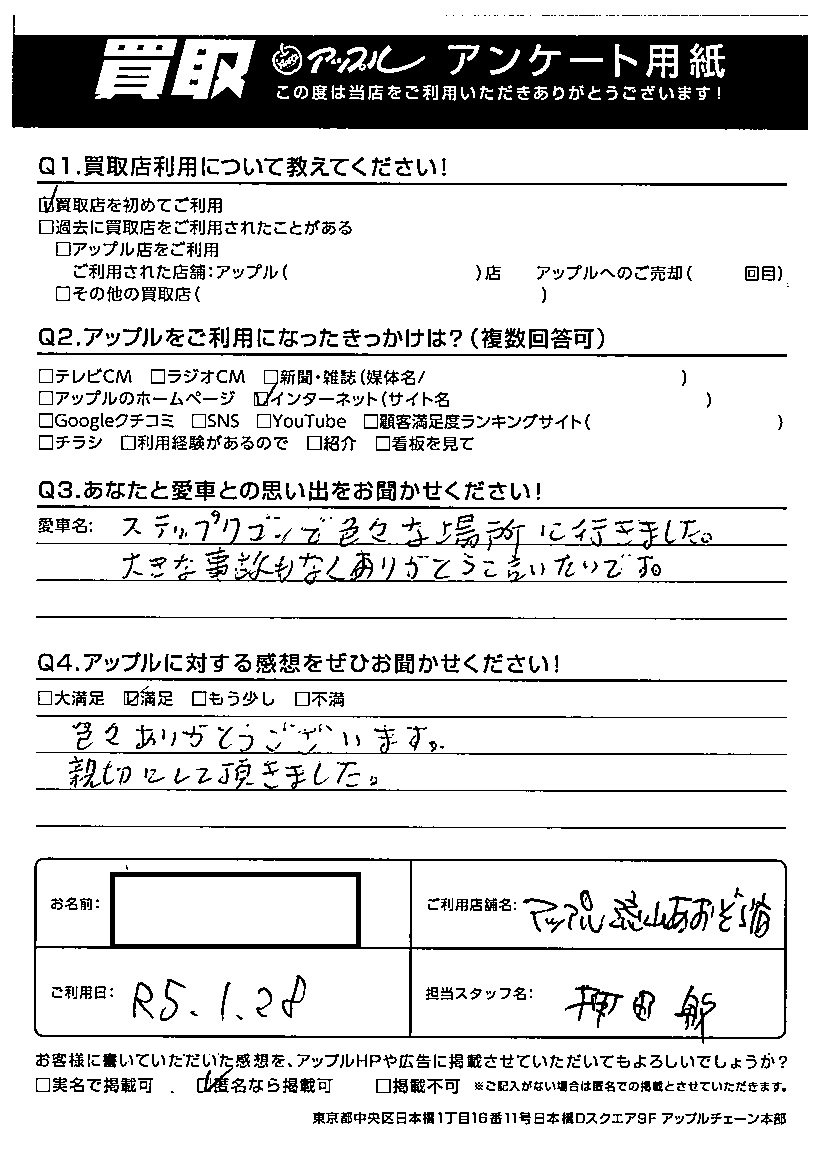 買取 アップル アンケート用紙
この度は当店をご利用いただきありがとうございます!
Q1.買取店利用について教えてください!
☑買取店を初めてご利用
□過去に買取店をご利用されたことがある
□アップル店をご利用
ご利用された店舗:アップル( )店 アップルへのご売却( 回目)
□その他の買取店( )
Q2.アップルをご利用になったきっかけは?(複数回答可)
□テレビCM □ラジオCM □新聞・雑誌(媒体名/ )
□アップルのホームページ ☑インターネット(サイト名 )
□Googleクチコミ □SNS □YouTube □顧客満足度ランキングサイト( )
□チラシ □利用経験があるので □紹介 □看板を見て
Q3.あなたと愛車との思い出をお聞かせください!
愛車名: ステップワゴンで色々な場所に行きました。
大きな事故もなくありがとうと言いたいです。
Q4.アップルに対する感想をぜひお聞かせください!
□大満足 ☑満足 □もう少し □不満
色々ありがとうございます。
親切にして頂きました。
お名前: ご利用店舗名: アップル
ご利用日: R5.1.28 担当スタッフ名: 田
お客様に書いていただいた感想を、アップルHPや広告に掲載させていただいてもよろしいでしょうか?
□実名で掲載可 ☑匿名なら掲載可 □掲載不可 ※ご記入がない場合は匿名での掲載とさせていただきます。
東京都中央区日本橋1丁目16番11号日本橋Dスクエア9F アップルチェーン本部